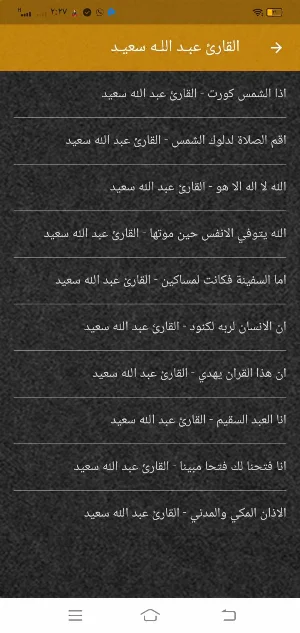 ٢:٢٧
القارئ عبـد اللـه سعيـد
اذا الشمس كورت - القارئ عبد الله سعيد
اقم الصلاة لدلوك الشمس - القارئ عبد الله سعيد
الله لا اله الا هو - القارئ عبد الله سعيد
الله يتوفي الانفس حين موتها - القارئ عبد الله سعيد
اما السفينة فكانت لمساكين - القارئ عبد الله سعيد
ان الانسان لربه لكنود - القارئ عبد الله سعيد
ان هذا القران يهدي - القارئ عبد الله سعيد
انا العبد السقيم - القارئ عبد الله سعيد
انا فتحنا لك فتحا مبينا - القارئ عبد الله سعيد
الاذان المكي والمدني - القارئ عبد الله سعيد